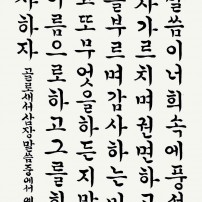 말씀이너희속에풍성
가르치며권면하고
을부르며감사하는마
고또무엇을하든지말
이름으로하고그를힘
하
골로새서삼장말씀중에서